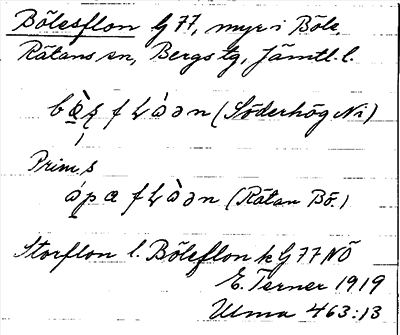 Bölesflon lg 77, myr i Böle,
Rätans sn, Bergs tg, Jämtl. l.
(Söderhög Ni)
Prim. s
(Rätan Bö.)
Storflon l. Bölesflon k G 77 NÖ
E. Terner 1919
Ulma 463:13